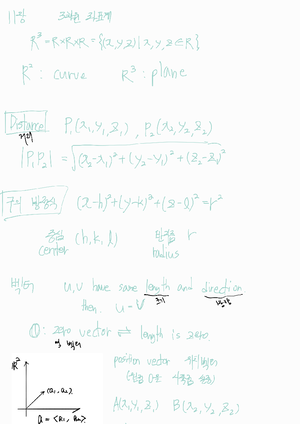 11장 3차원 좌표계
R³ = R×R×R = {(x,y,z) | x,y,z ∈ R}
R² : curve R³ : plane
Distance P₁(x₁,y₁,z₁), P₂(x₂,y₂,z₂)
거리
|P₁P₂| = √(x₂-x₁)²+(y₂-y₁)²+(z₂-z₁)²
구의 방정식 (x-h)²+(y-k)²+(z-l)²=r²
중심 (h,k,l) 반지름 r
center radius
벡터 u,v have same length and direction
크기 방향
then u = v
①: zero vector ⇌ length is zero
영 벡터
R² position vector 위치벡터
(a₁,a₂)
A(x₁,y₁,z₁) B(x₂,y₂,z₂)
a = <a₁,a₂>